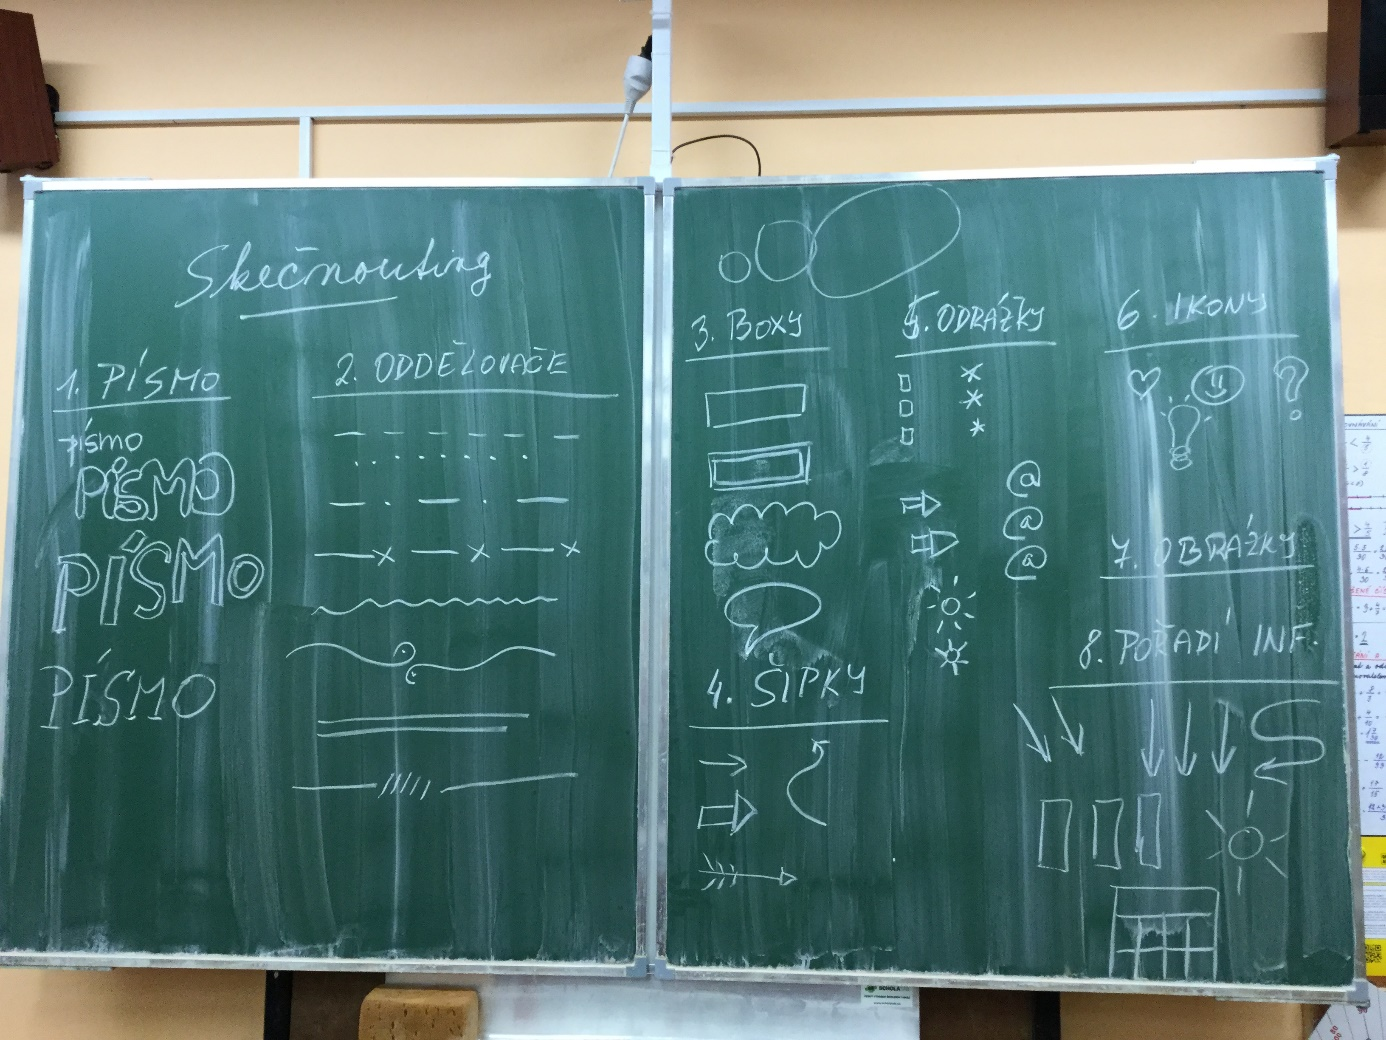 Skečnouting
1. PÍSMO
písmo
PÍSMO
PÍSMO
PÍSMO
2. ODDĚLOVAČE
3. BOXY
4. ŠIPKY
5. ODRÁŽKY
@
@
@
6. IKONY
?
7. OBRÁZKY
8. POŘADÍ INF.